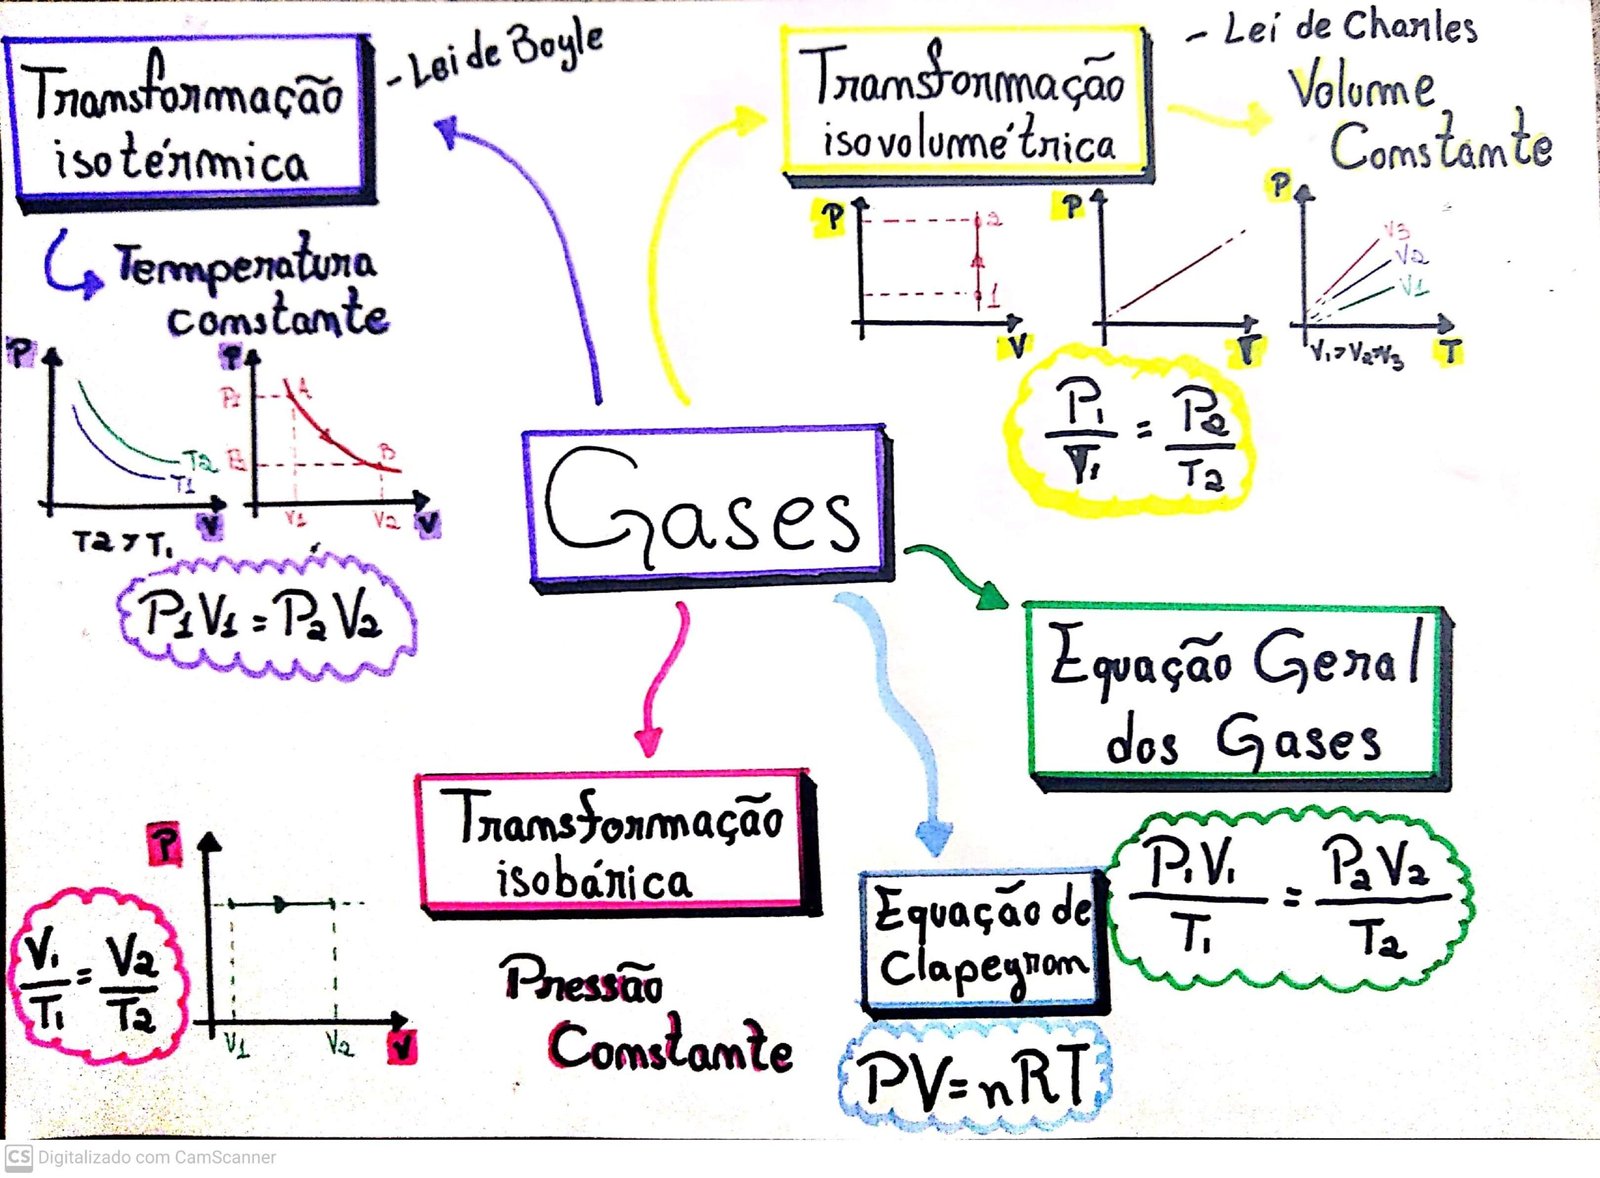 Transformação
isotérmica
- Lei de Boyle
Temperatura
constante
P
T2
T1
V
T2 > T1
P
P2
A
B
V1
V2
V
P1V1 = P2V2
Transformação
isovolumétrica
- Lei de Charles
Volume
Constante
P
2
1
V
P
T
P
V3
V2
V1
V1 > V2 > V3
T
P1/T1 = P2/T2
Gases
Equação Geral
dos Gases
P1V1/T1 = P2V2/T2
Transformação
isobárica
Pressão
Constante
P
V1
V2
V
V1/T1 = V2/T2
Equação de
Clapeyron
PV = nRT
CS Digitalizado com CamScanner